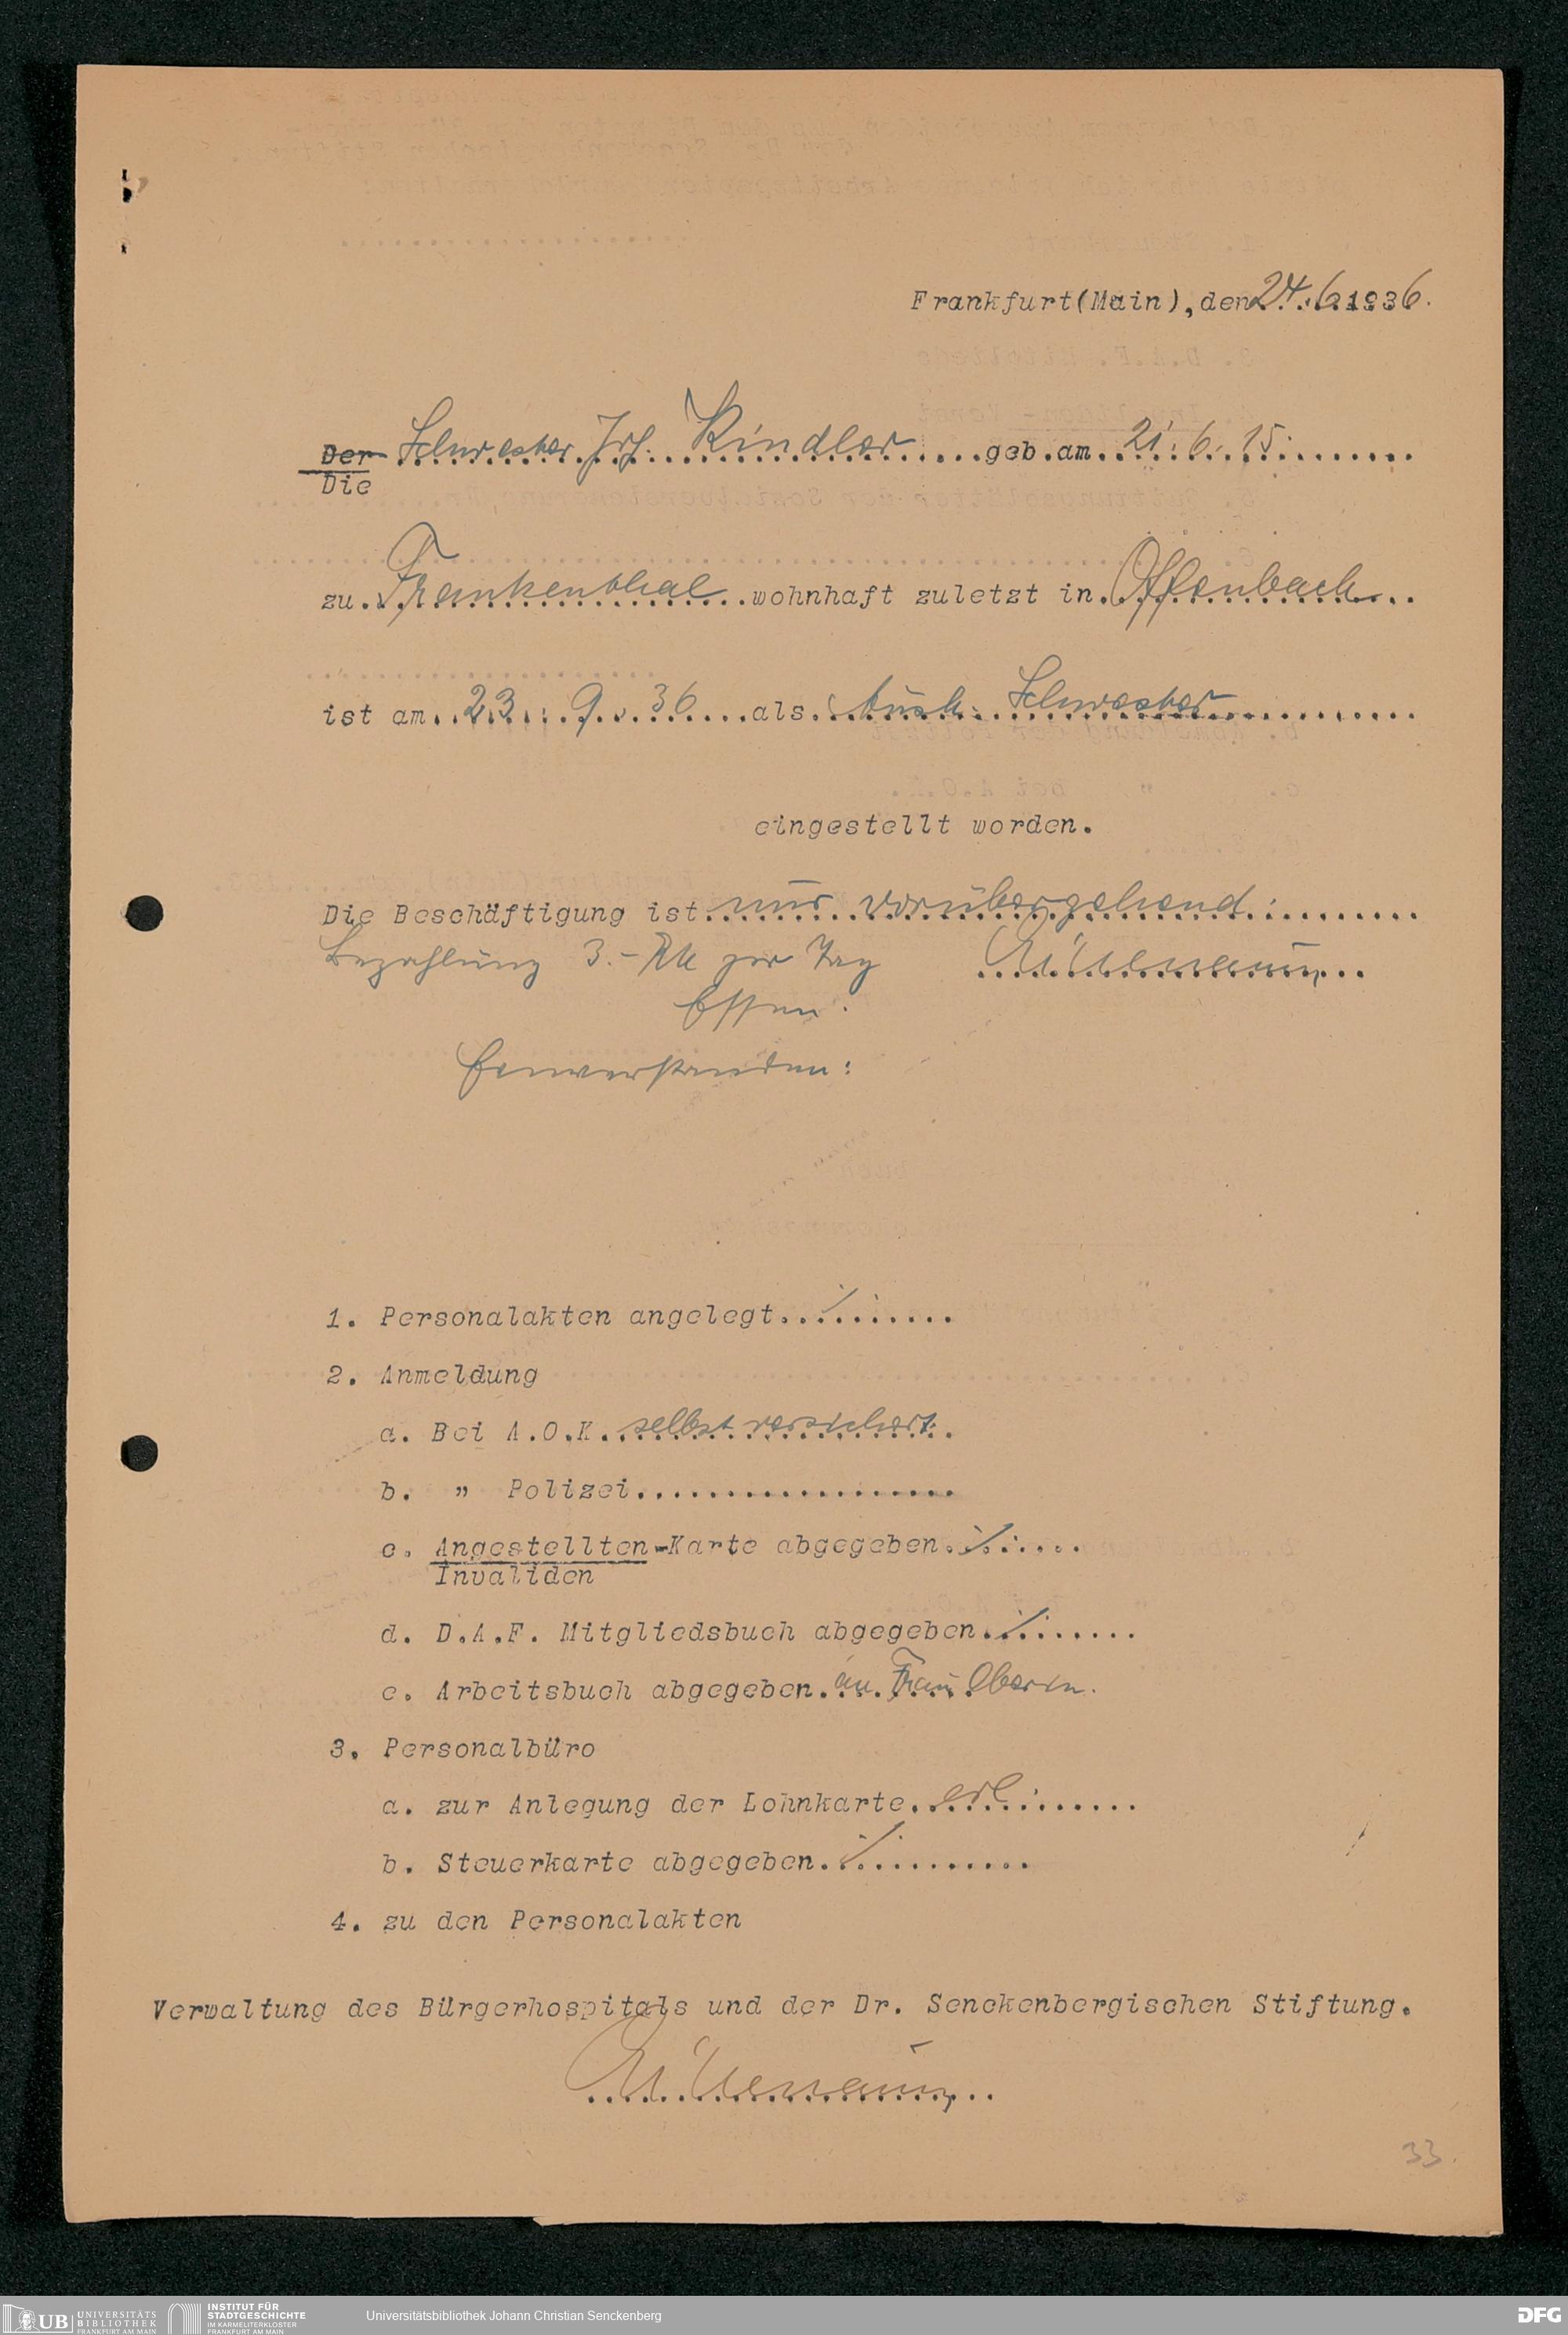 Frankfurt(Main),den 24.6.1936.
Der Schwester Kindler geb.am 21.6.15.
Die
zu Frankenthal wohnhaft zuletzt in Offenbach
ist am 23.9.36 als Aush. Schwester
eingestellt worden.
Die Beschäftigung ist nur vorübergehend.
Bezahlung 3.- RM pro Tag
Essen.
Einverstanden:
1. Personalakten angelegt ./.
2. Anmeldung
a. Bei A.O.K. selbst versichert.
b. " Polizei
c. Angestellten-Karte abgegeben ./.
Invaliden
d. D.A.F. Mitgliedsbuch abgegeben ./.
e. Arbeitsbuch abgegeben. an Frau Oberin.
3. Personalbüro
a. zur Anlegung der Lohnkarte. erl.
b. Steuerkarte abgegeben ./.
4. zu den Personalakten
Verwaltung des Bürgerhospitals und der Dr. Senckenbergischen Stiftung.
33
UB UNIVERSITÄTS BIBLIOTHEK FRANKFURT AM MAIN
INSTITUT FÜR STADTGESCHICHTE IM KARMELITERKLOSTER FRANKFURT AM MAIN
Universitätsbibliothek Johann Christian Senckenberg
DFG